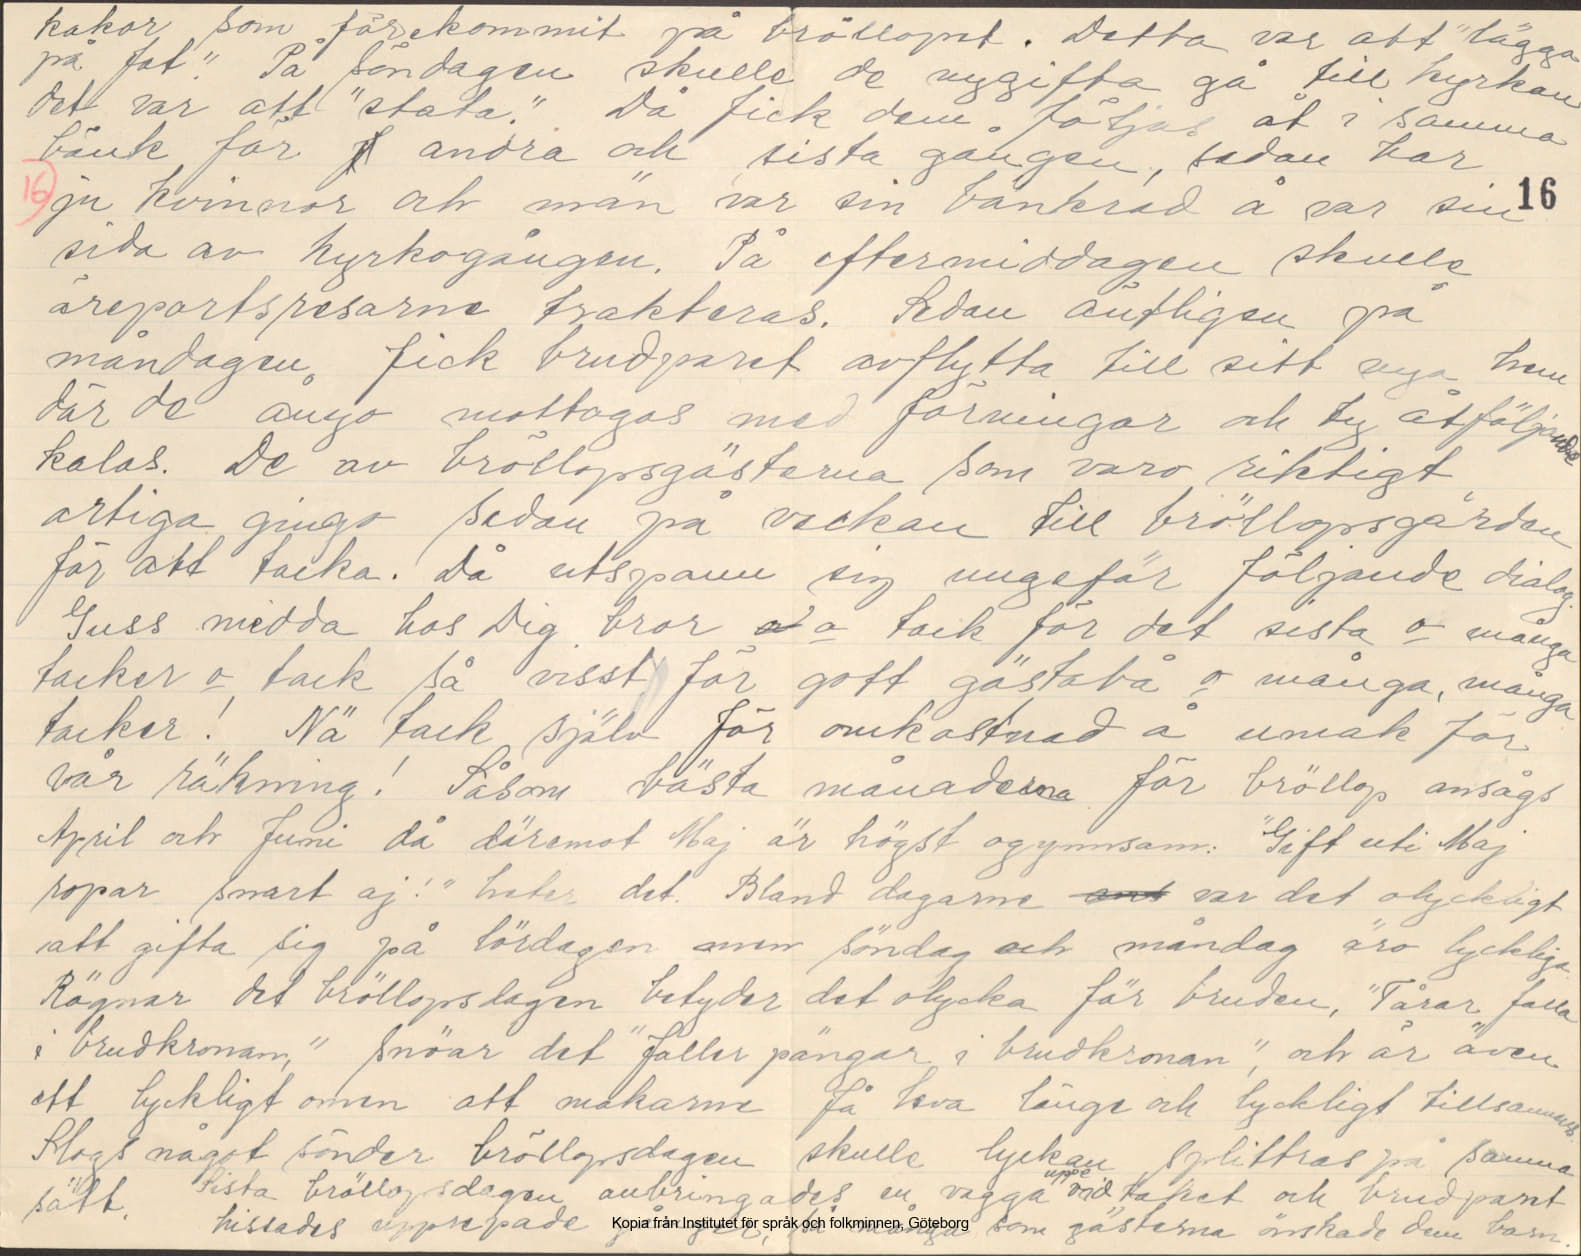 kakor som förekommit på bröllopet. Detta var att "lägga
på fat". På söndagen skulle de nygifta gå till kyrkan
det var att "stata." Då fick dem följas åt i samma
bänk för andra och sista gången, sedan har
16 ju kvinnor och män var sin bänkrad å var sin 16
sida av kyrkogången. På eftermiddagen skulle
äreportsresarne trakteras. Sedan äntligen på
måndagen fick brudparet avflytta till sitt nya hem
där de ånyo mottogos med förningar och ty åtföljande
kalas. De av bröllopsgästerna som varo riktigt
artiga gingo sedan på veckan till bröllopsgården
för att tacka. Då utspann sig ungefär följande dialog.
Guss nidda hos Dig bror o tack för det sista o många
tacker o tack så visst för gott gästabå o många, många
tacker! Nä tack själv för omkostnad å umak för
vår räkning! Såsom bästa månaderna för bröllop ansågs
April och Juni då däremot Maj är högst ogynnsam: "Gift uti Maj
ropar snart aj!" heter det. Bland dagarne var det olyckligt
att gifta sig på lördagen men söndag och måndag äro lyckliga.
Rägnar det bröllopsdagen betyder det olycka för bruden, "Tårar falla
i brudkronan," snöar det "faller pängar i brudkronan", och är även
ett lyckligt omen att makarne få leva länge och lyckligt tillsammans.
Slogs något sönder bröllopsdagen skulle lyckan splittras på samma
sätt. Sista bröllopsdagen anbringades en vagga uppe vid taket och brudparet
hissades upprepade gånger, så många som gästerna önskade dem barn.
Kopia från Institutet för språk och folkminnen, Göteborg